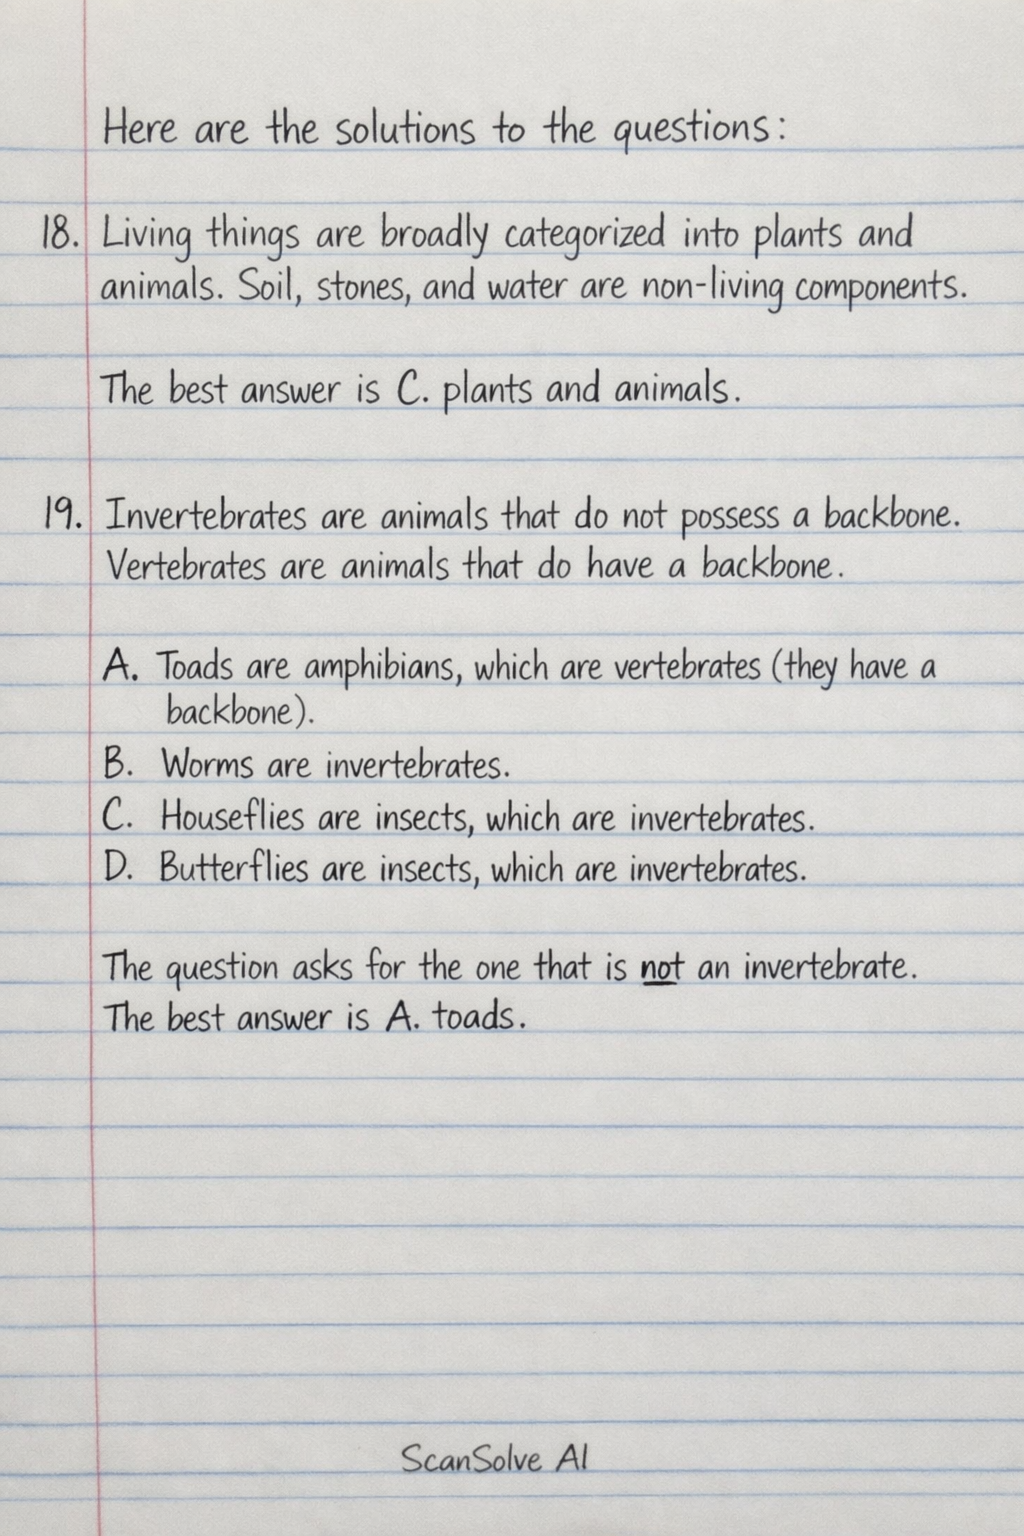 Here are the solutions to the questions:
18. Living things are broadly categorized into plants and
animals. Soil, stones, and water are non-living components.
The best answer is C. plants and animals.
19. Invertebrates are animals that do not possess a backbone.
Vertebrates are animals that do have a backbone.
A. Toads are amphibians, which are vertebrates (they have a
backbone).
B. Worms are invertebrates.
C. Houseflies are insects, which are invertebrates.
D. Butterflies are insects, which are invertebrates.
The question asks for the one that is not an invertebrate.
The best answer is A. toads.
ScanSolve AI